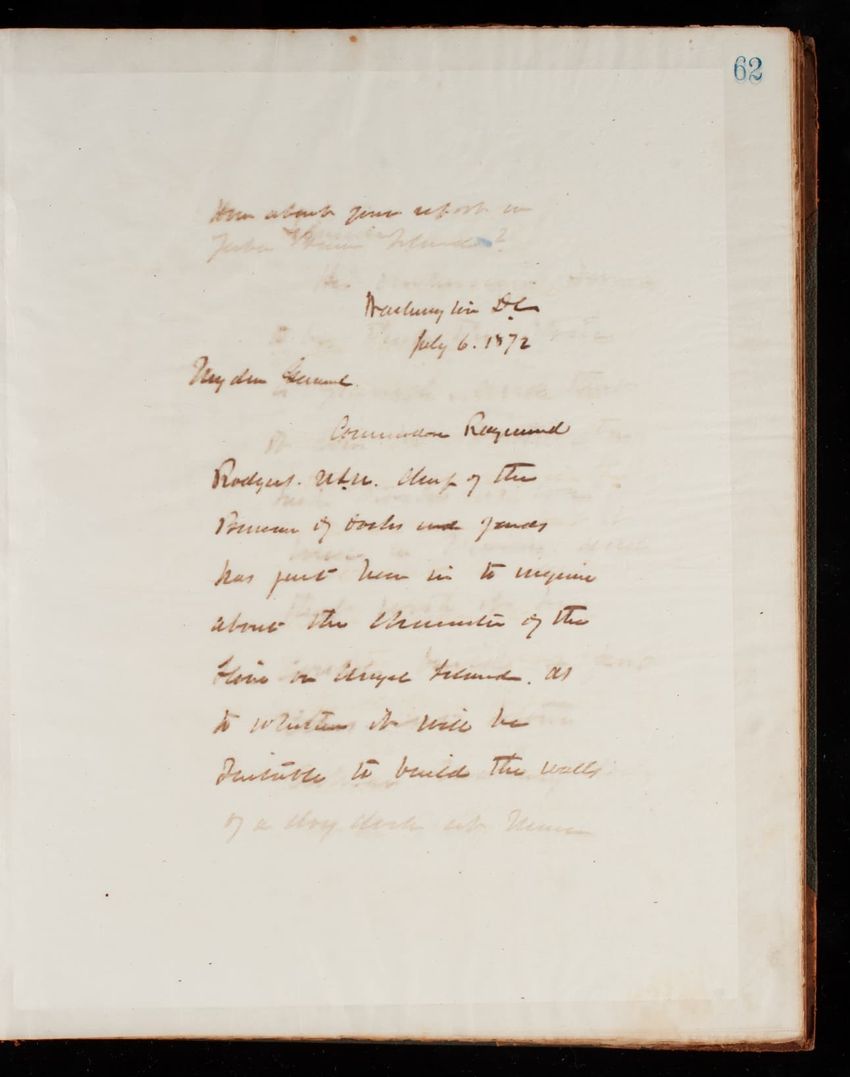 62
How about your report on
Yerba Buena Island?
Washington DC
July 6. 1872
My dear General.
Commodore Raymond
Rodgers. U.S.N. Chief of the
Bureau of Docks and Yards
has just been in to inquire
about the character of the
stone on Angel Island. as
to whether it will be
suitable to build the walls
of a dry dock at Mare